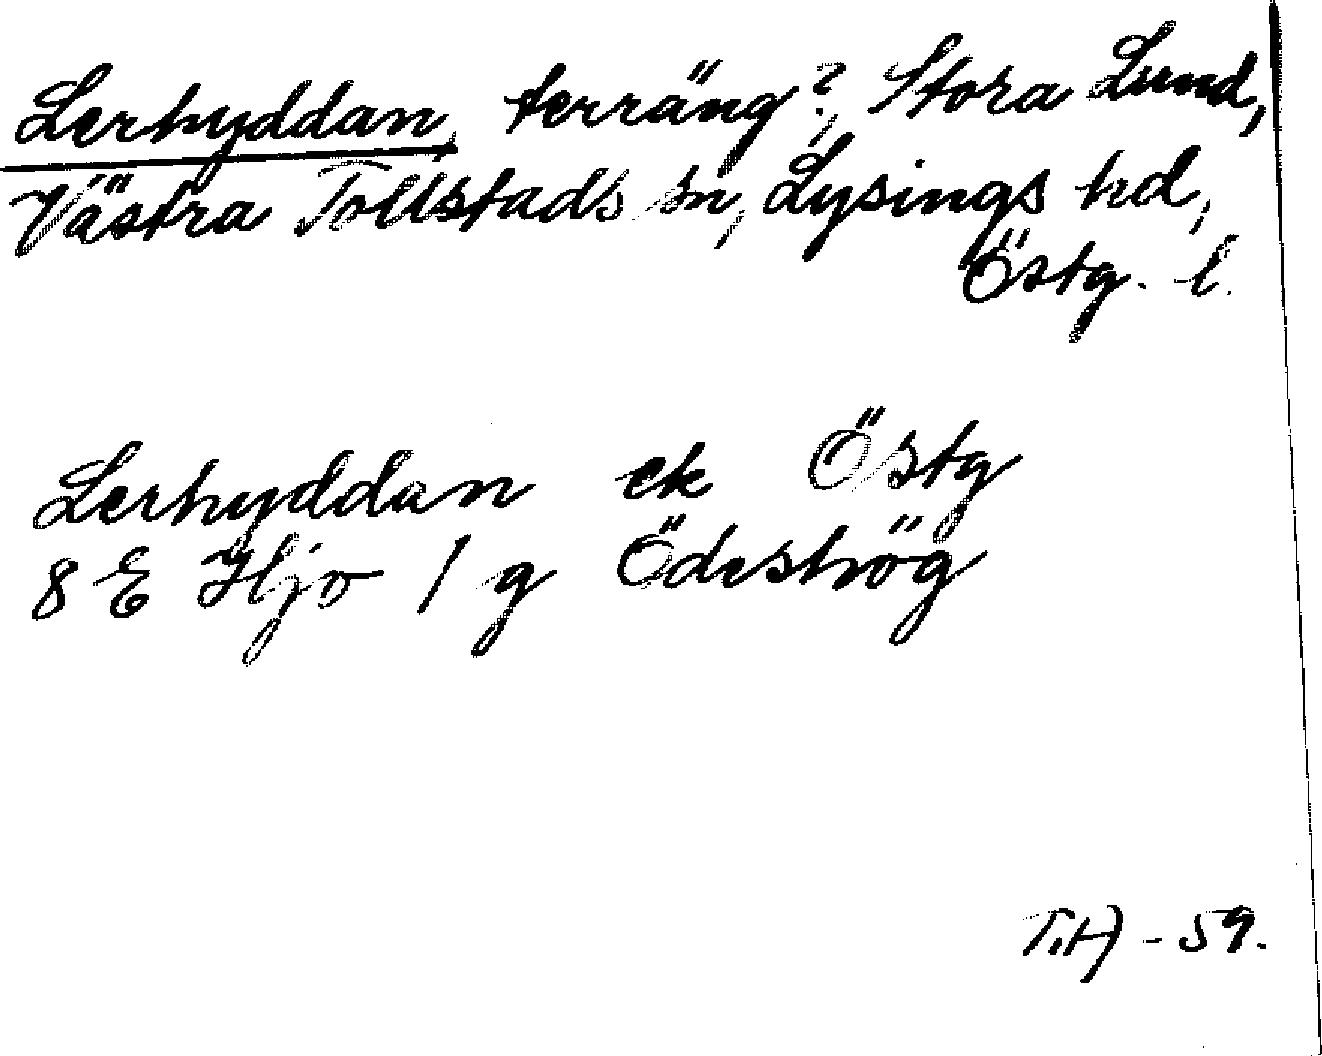 Lerhyddan, terräng?, Stora Lund,
Västra Tollstads sn, Lysings hd,
Östg. l.
Lerhyddan ek Östg
8 E Hjo 1 g Ödeshög
T.H. - 59.